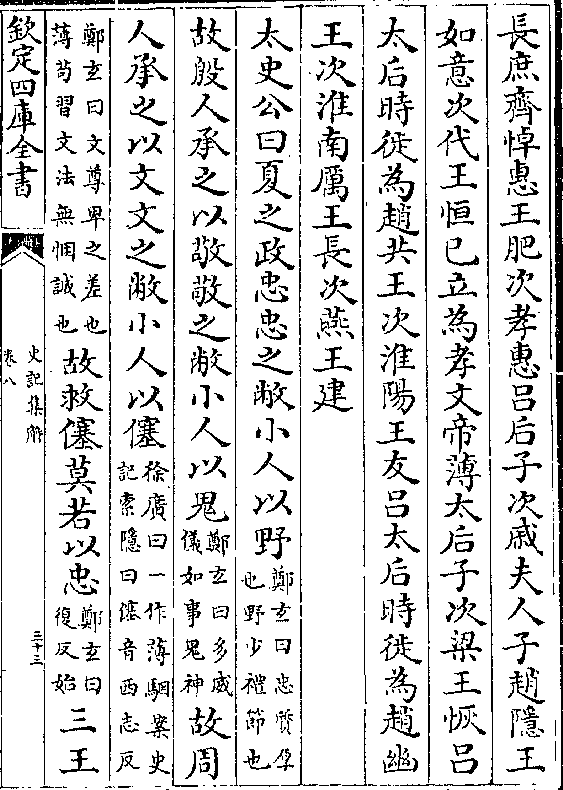 長庶齊悼惠王肥次孝惠呂后子次戚夫人子趙隱王
如意次代王恒已立為孝文帝薄太后子次梁王恢呂
太后時徙為趙共王次淮陽王友呂太后時徙為趙幽
王次淮南厲王長次燕王建
太史公曰夏之政忠忠之敝小人以野鄭𤣥曰忠質厚也野少禮節也
故殷人承之以敬敬之敝小人以鬼鄭𤣥曰多威儀如事鬼神故周
人承之以文文之敝小人以僿徐廣曰一作薄駰案史記索隱曰僿音西志反
鄭𤣥曰文尊卑之差也薄茍習文法無悃誠也故救僿莫若以忠鄭𤣥曰復反始三王
欽定四庫全書
史記集解
卷八
三十三